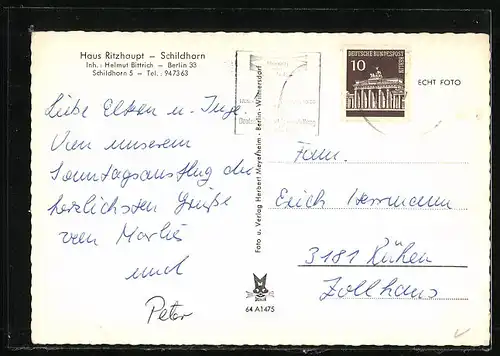 Haus Ritzhaupt – Schildhorn
Inh.: Helmut Bittrich – Berlin 33
Schildhorn 5 – Tel.: 947363
Liebe Eltern u. Inge.
Von unserem
Sonntagsausflug die
herzlichsten Grüße
von Marlis
und
Peter
Foto u. Verlag Herbert Meyerheim · Berlin-Wilmersdorf
DEUTSCHE BUNDESPOST
BERLIN
10
ECHT FOTO
Fam.
Erich Herrmann
3181 Rühen
Zollhaus
64 A1475